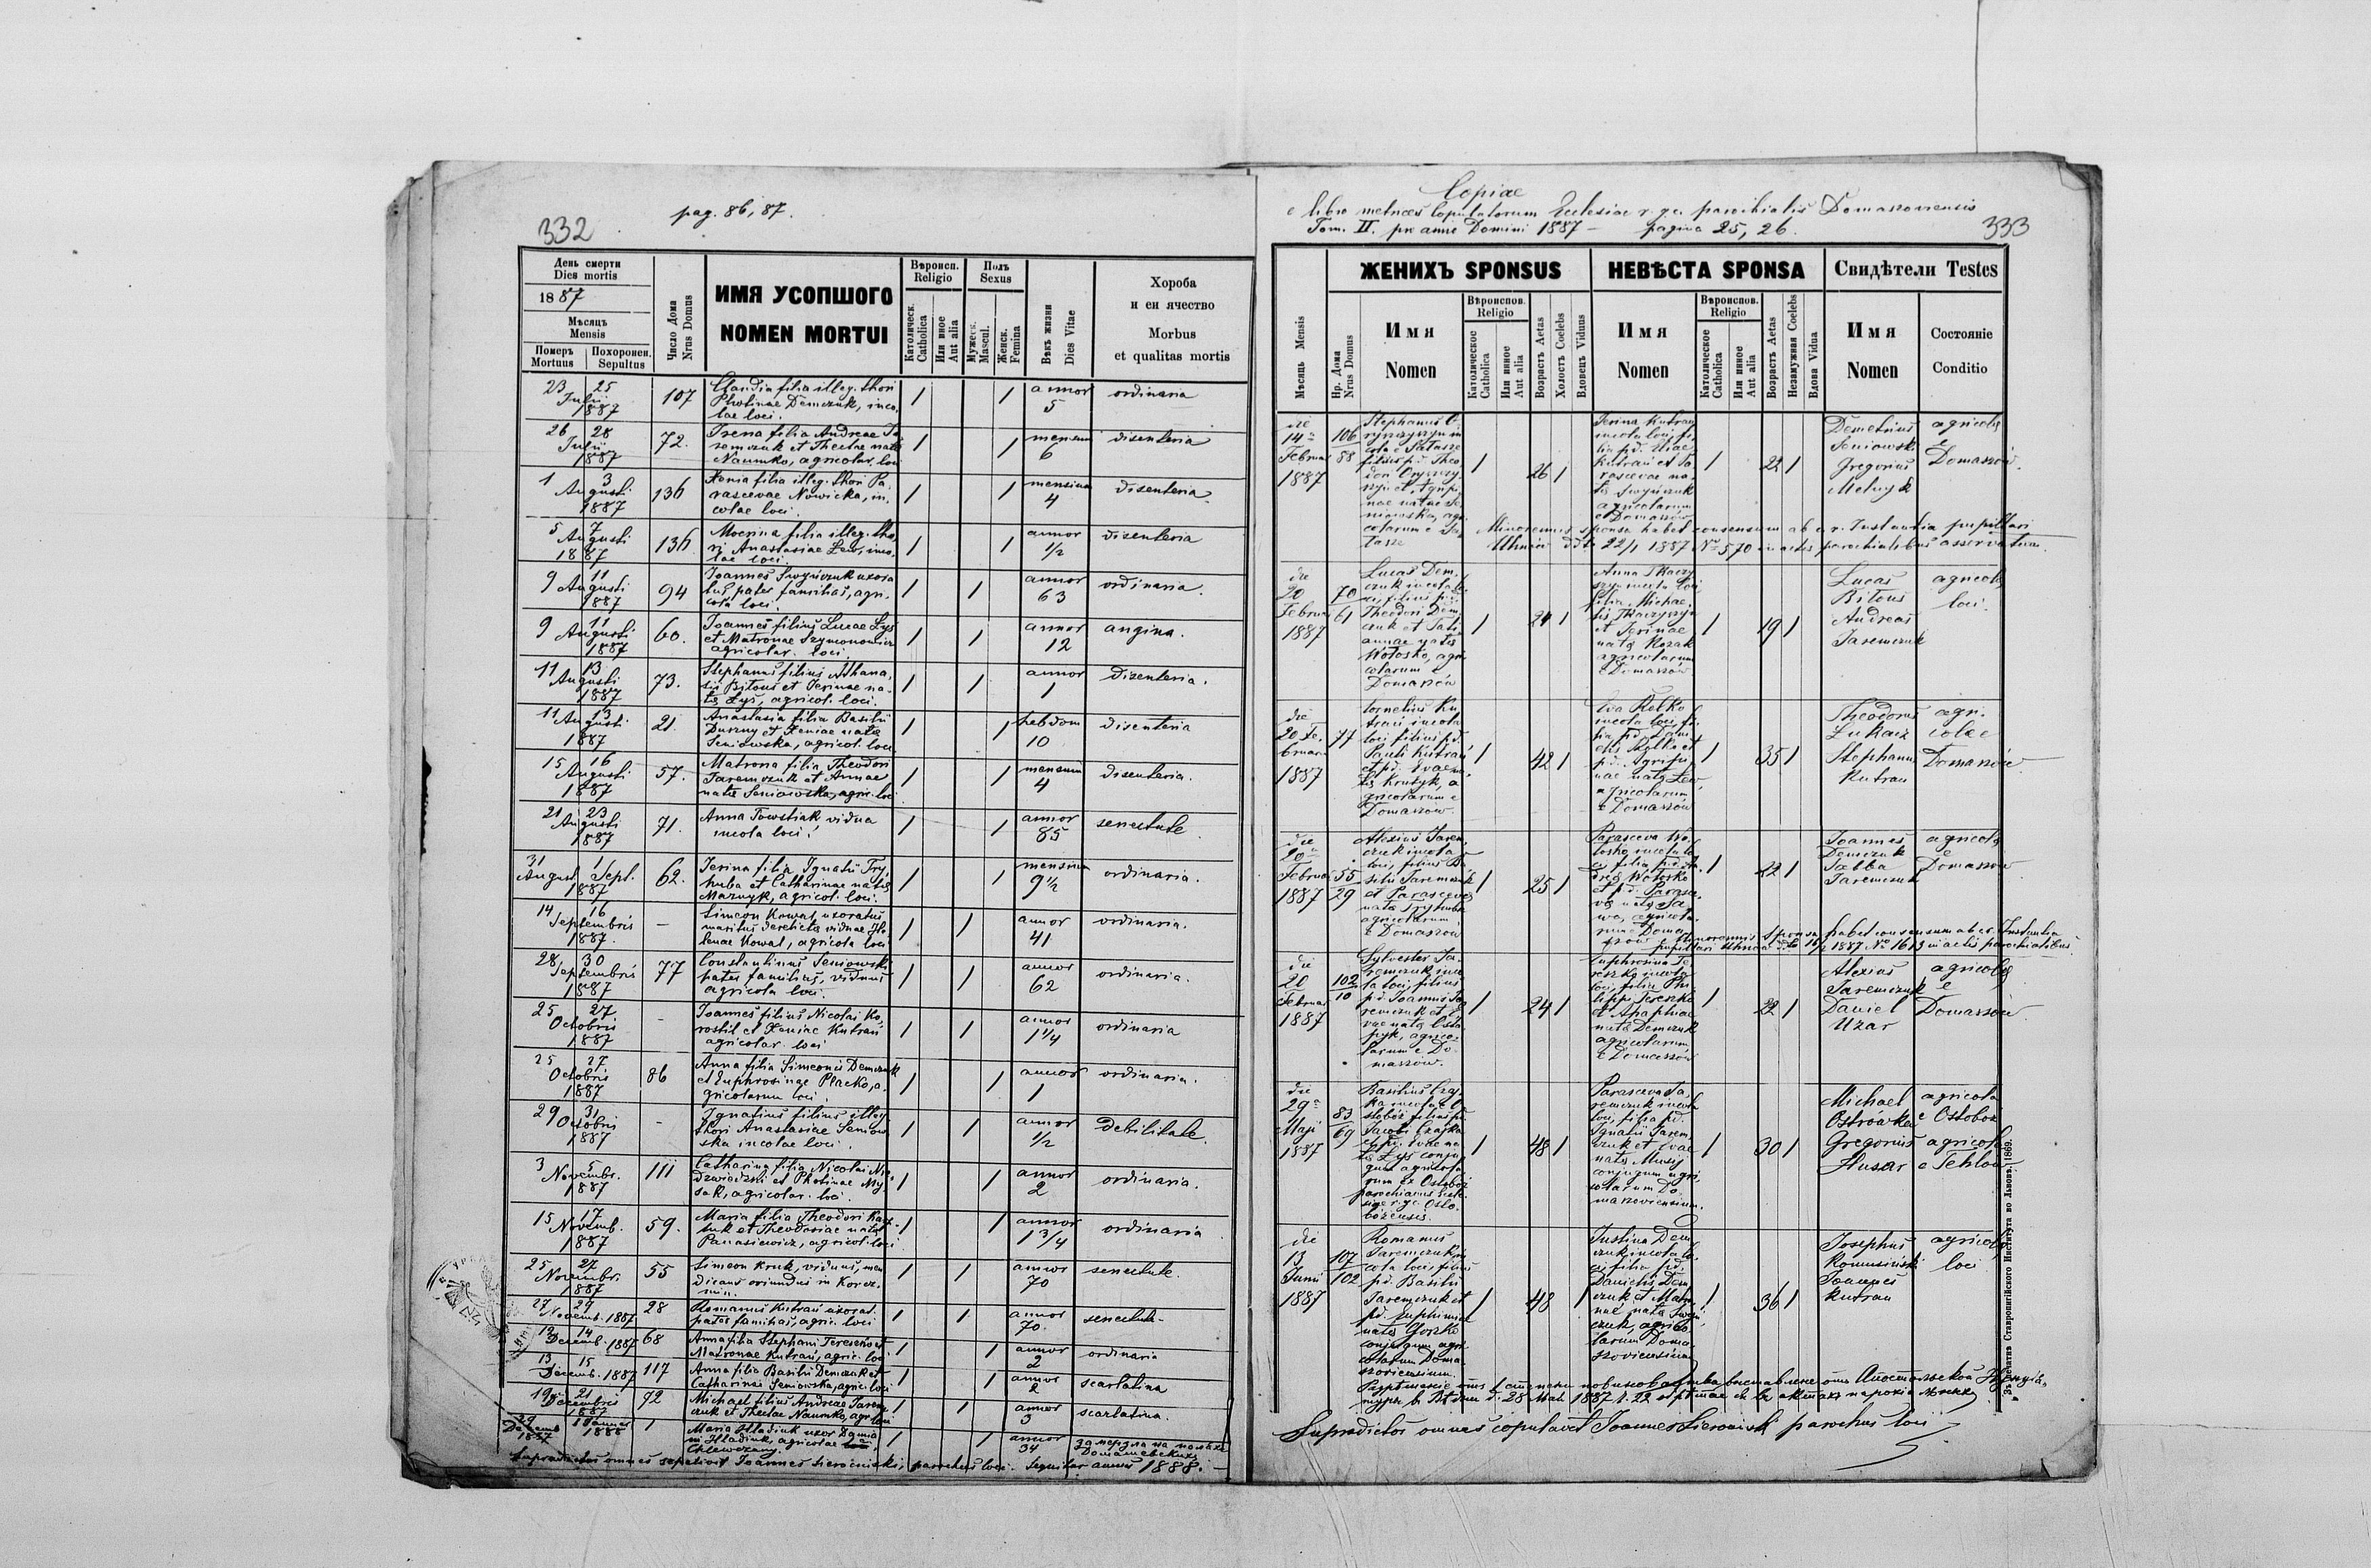 332
pag. 86, 87.
День смерти
Dies mortis
1887
Мѣсяць
Mensis
Померъ
Mortuus
Похоронен.
Sepultus
Число Дома
Nrus Domus
ИМЯ УСОПШОГО
NOMEN MORTUI
Вѣроисп.
Religio
Католическ.
Catholica
Или иное
Aut alia
Полъ
Sexus
Мужеск.
Mascul.
Женск.
Femina
Вѣкъ жизни
Dies Vitae
Хороба
и еи ячество
Morbus
et qualitas mortis
23 25 Julii 1887 107 Claudia filia illeg. thori
Photinae Demczuk, inco-
lae loci. 1 1 annor 5 ordinaria
26 28 Julii 1887 72. Irena filia Andreae Ja-
remczuk et Theclae natae
Naumko, agricolar. loci 1 1 mensium 6 disenteria
1 3 Augusti 1887 136 Xenia filia illeg. thori Pa-
rascevae Nowicka, in-
colae loci. 1 1 mensium 4 disenteria
5 7 Augusti 1887 136 Mocrina filia illeg. tho-
ri Anastasiae Lew, inco-
lae loci. 1 1 annor 1/2 disenteria
9 11 Augusti 1887 94 Joannes Swyńczuk uxora
tus pater familias, agri-
cola loci. 1 1 annor 63 ordinaria.
9 11 Augusti 1887 60. Joannes filius Lucae Lys
et Matronae Szymonowicz
agricolar. loci. 1 1 annor 12 angina.
11 13 Augusti 1887 73. Stephanus filius Athana-
sii Bitous et Jerinae na-
tę Lys, agricol. loci. 1 1 annor 1 disenteria.
11 13 Augusti 1887 21. Anastasia filia Basilii
Duszny et Xeniae natae
Seniowska, agricol. loci. 1 1 hebdom 10 disenteria
15 16 Augusti 1887 57. Matrona filia Theodori
Jaremczuk et Annae
natae Seniowska, agric. loci 1 1 mensium 4 disenteria.
21 23 Augusti 1887 71. Anna Towstiak vidua
incola loci. 1 1 annor 85 senectute.
31 August 1 Sept. 1887 62. Jerina filia Ignatii Try-
huba et Catharinae natę
Maznyk, agricol. loci. 1 1 mensium 9 1/2 ordinaria.
14 16 Septembris 1887. - Simeon Kowal, uxoratus
maritus derelictę viduae He-
lenae Kowal, agricola loci 1 1 annor 41 ordinaria.
28 30 Septembris 1887 77 Constantinus Seniowski
pater familias, viduus
agricola loci. 1 1 annor 62 ordinaria.
25 27 Octobris 1887 - Joannes filius Nicolai Ko-
rostil et Xeniae Kutrań
agricolar. loci 1 1 annor 1 1/4 ordinaria
25 27 Octobris 1887 86 Anna filia Simeonis Demczuk
et Euphrosinae Placko, a-
gricolarum loci. 1 1 annor 1 ordinaria.
29 31 Octobris 1887 - Ignatius filius illeg.
thori Anastasiae Seniow-
ska incolae loci. 1 1 annor 1/2 debilitate.
3 5 Novembr. 1887 111 Catharina filia Nicolai Nie-
dzwiedzki et Photinae My-
sak, agricolar. loci. 1 1 annor 2 ordinaria.
15 17 Novemb. 1887 59. Maria filia Theodori
et Theodosiae natae
Panasiewicz, agricol. loci 1 1 annor 1 3/4 ordinaria
25 27 Novembr. 1887 55 Simeon Kruk, viduus, men
dicans oriundus in Korcz-
min. 1 1 annor 70 senectute.
27 29 Novemb. 1887 28 Romanus Kutrań uxorat.
pater familias, agric. loci 1 1 annor 70. senectute.
12 14 Decemb. 1887 68 Anna filia Stephani Tereszko et
Matronae Kutrań, agric. loci. 1 1 annor 2 ordinaria
13 15 Decemb. 1887 117 Anna filia Basilii Demczuk et
Catharinae Seniowska, agric. loci 1 1 annor 2 scarlatina
19 21 Decembris 1887 72 Michael filius Andreae Jarem-
czuk et Theclae Naumko, agr. loci 1 1 annor 3 scarlatina.
29 Decemb 1887 1 Januar 1888 1 Maria Hladiuk uxor
Hladiuk, agricolae
Chlewczany. 1 1 annor 34 замерзла на поляхъ
Домашевскихъ
Supradictos omnes sepelivit Joannes Sierociński, parochus loci. Sequitur annus 1888. -
Copiae
e libro metrices Copulatorum Ecclesiae r. g. c. parochialis Domaszoviensis
Tom. II. pro anno Domini 1887 - pagina 25, 26.
333
Мѣсяць Mensis
Нр. Дома
Nrus Domus
ЖЕНИХЪ SPONSUS
Имя
Nomen
Вѣроиспов.
Religio
Католическое
Catholica
Или иное
Aut alia
Возрасть Aetas
Холость Coelebs
Вдовець Viduus
НЕВѢСТА SPONSA
Имя
Nomen
Вѣроиспов.
Religio
Католическое
Catholica
Или иное
Aut alia
Возрасть Aetas
Незамужная Coelebs
Вдова Vidua
Свидѣтели Testes
Имя
Nomen
Состояніе
Conditio
die
14a
Februar
1887
106
88
Stephanus O-
ryszczyn in
cola e Tatarze
filius pd. Theo-
dori Oryszczy-
szyn et Agripi-
nae natae Se-
niowska, agri-
colarum e Ta-
tarze
1 26 1
Jerina Kutrań
incola loci, fi-
lia pd. Eliae
Kutrań et Pa-
rascevae na-
tę Swyńczuk
agricolarum
e Domaszów
1 22 1
Demetrius
Seniowski
Gregorius
Melnyk
agricolę
e
Domaszów.
Minorennis sponsa habet consensum ab c. r. Instantia pupillari
Uhnów ddto 22/1 1887 No 570 in actis parochialibus asservatum.
die
20
Februar
1887
70
61
Lucas Dem-
czuk incola lo-
ci, filius pd.
Theodori Dem-
czuk et Tati-
annae natę
Wołosko, agri-
colarum e
Domaszów
1 24 1
Anna Tkaczy-
szyn incola loci
filia Michae-
lis Tkaczyszyn
et Jerinae
natę Kozak
agricolarum
e Domaszów
1 19 1
Lucas
Bitous
Andreas
Jaremczuk
agricolę
loci.
die
20 Fe-
bruar
1887
77
Cornelius Ku-
trań incola
loci filius pd.
Pauli Kutrań
et pd. Evae na-
tę Krutyk, a
gricolarum e
Domaszow.
1 42 1
Eva Relko
incola loci, fi-
lia pd. Dani-
elis Relko et
pd. Agripi-
nae natę Lew
agricolarum
e Domaszów
1 35 1
Theodorus
Lukacz
Stephanus
Kutrau
agri-
colae
e
Domaszów
die
20a
Februar
1887
55
29
Alexius Jarem-
czuk incola
loci, filius Ba-
silii Jaremczuk
et Parascevę
natę Tryhuba
agricolarum
e Domaszow
1 25 1
Parasceva Wo-
łosko incola lo-
ci filia pd. An-
dreę Wołosko
et pd. Parasce-
vę natę Sa-
wa, agricola-
rum e Doma-
szów
1 22 1
Joannes
Demczuk
Sabba
Jaremczuk
agricolę
e
Domaszów
Minorennis sponsa habet consensum ab c.r. Instantia
pupillari Uhnów ddto 16/2 1887 No 1613 in actis parochialibus
die
20
Februar
1887
102
10
Sylvester Ja-
remczuk inco-
la loci, filius
pd. Joannis Ja-
remczuk et E-
vae natę Osta-
pyk, agrico-
larum e Do-
maszów.
1 24 1
Euphrosina Te-
reszko incola
loci, filia Phi-
lippi Tereszko
et Agaphiae
natę Demczuk
agricolarum
e Domaszów
1 22 1
Alexius
Jaremczuk
Daniel
Uzar
agricolę
e
Domaszów
die
29a
Maji
1887
83
69
Basilius Czaj-
ka incola e O-
stoboż filius pd.
Jacobi Czajka
et pd. Evae na-
tę Lys conju-
gum agricola-
rum ex Ostoboż
parochianus Eccle-
siae r. g. c. Osto-
bożensis.
1 48 1
Parasceva Ja-
remczuk incola
loci, filia pd.
Ignatii Jarem-
czuk et Evae
natę Musij
conjugum agri-
colarum Do-
maszoviensium.
1 30 1
Michael
Ostrówka
Gregorius
Husar
agricola
e Ostoboż
agricola
e Tehlow
die
13
Junii
1887
107
102
Romanus
Jaremczuk in-
cola loci, filius
pd. Basilii
Jaremczuk et
pd. Euphimiae
natę Goszko
conjugum agri-
colarum Doma-
szoviensium.
1 48 1
Justina Dem-
czuk incola lo-
ci filia pd.
Danielis Dem-
czuk et Matro-
nae natę Swyń-
czuk, agrico-
larum Doma-
szoviensium
1 36 1
Josephus
Romusiński
Joannes
Kutrau
agricolę
loci
Supradictos omnes copulavit Joannes Sierociński parochus loci.
Зъ печатнѣ Ставропигійского Института во Львовѣ. 1869.